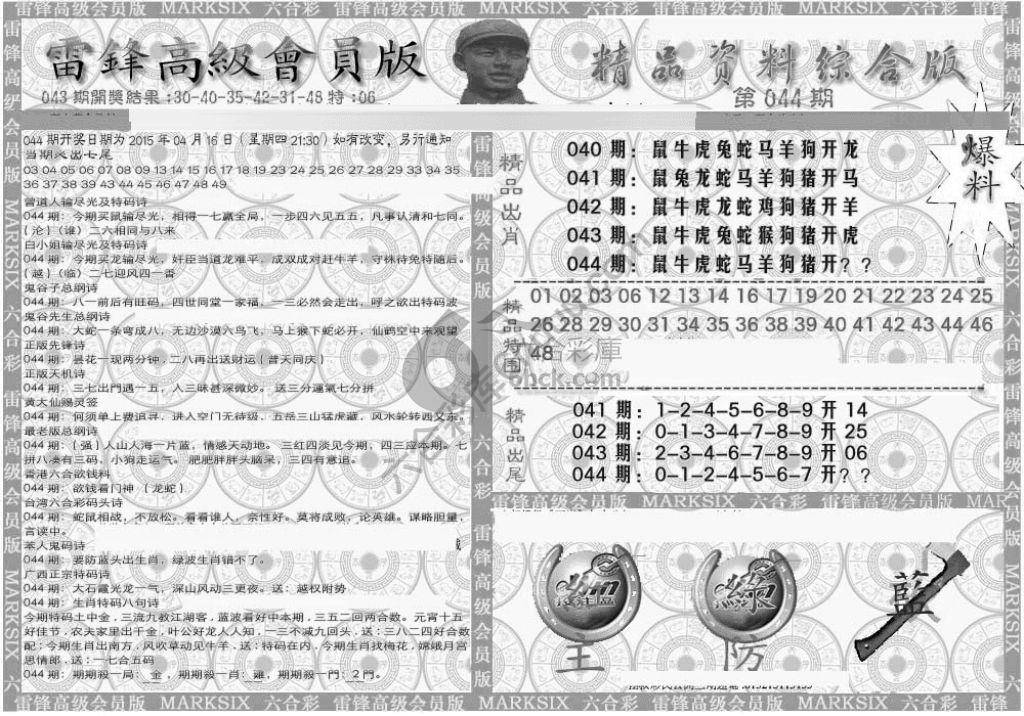 雷锋高级会员版 MARKSIX 六合彩 雷锋高级会员版 MARKSIX 六合彩 雷锋高级会员版 MARKSIX 六合彩 雷锋
雷鋒高級會員版
精品资料综合版
043 期開獎結果 :30-40-35-42-31-48 特 :06
第 044 期
爆料
044 期开奖日期为 2015 年 04 月 16 日（星期四 21:30）如有改变，另行通知
当期久出七尾
03 04 05 06 07 08 09 13 14 15 16 17 18 19 23 24 25 26 27 28 29 33 34 35
36 37 38 39 43 44 45 46 47 48 49
曾道人输尽光及特码诗
044 期：今期买鼠输尽光，相得一七赢全局，一步四六见五五，凡事认清和七同。
{沦}（谁）二六相同与八来
白小姐输尽光及特码诗
044 期：今期买龙输尽光，奸臣当道龙难平，成双成对赶牛羊，守株待兔特随后。
{越}（临）二七迎风四一香
鬼谷子总纲诗
044 期：八一前后有旺码，四世同堂一家福，一三必然会走出，呼之欲出特码波
鬼谷先生总纲诗
044 期：大蛇一条弯成八，无边沙漠六鸟飞，马上猴下蛇必开，仙鹤空中来观望
正版先锋诗
044 期：昙花一现两分钟．二八再出送财运{普天同庆}
正版天机诗
044 期：三七出門遇一五，人三昧甚深微妙。 送三分運氣七分拼
黄大仙赐灵签
044 期：何须单上费追寻，进入空门无待级，五岳三山猛虎藏，风水轮转西又东。
最老版总纲诗
044 期：{强}人山人海一片蓝，情感天动地。 三红四淡见今期，四三应本期。七
拼八凑有三码，小狗走运气。 肥肥胖胖头脑呆，三四有意追。
香港六合欲钱料
044 期：欲钱看门神 {龙蛇}
台湾六合彩码头诗
044 期：蛇鼠相战，不放松。看看谁人，奈性好。莫将成败，论英雄。谋略胆量，
言读中。
苯人鬼码诗
044 期：要防蓝头出生肖，绿波生肖错不了。
广西正宗特码诗
044 期：大石霞光龙一气，深山风动三更夜。送：越权附势
044 期：生肖特码八句诗
今期特码土中金．三流九教江湖客，蓝波看好中本期．三五二回两合数。元宵十五
好佳节．农夫家里出千金．叶公好龙人人知．一三不减九回头．送：三八二四好合数
配：今期生肖出南方．风吹草动见牛羊．送：特码在内．今期生肖找梅花．嫦娥月宫
思情郎．送：一七合五码
044 期：期期殺一局：金，期期殺一肖：雞，期期殺一門：2 門。
精品出肖
040 期：鼠牛虎兔蛇马羊狗开龙
041 期：鼠兔龙蛇马羊狗猪开马
042 期：鼠牛虎龙蛇鸡狗猪开羊
043 期：鼠牛虎兔蛇猴狗猪开虎
044 期：鼠牛虎蛇马羊狗猪开？？
精品特围
01 02 03 06 12 13 14 16 17 19 20 21 22 23 24 25
26 28 29 30 31 34 35 36 38 39 40 41 42 43 44 46
48
精品出尾
041 期：1-2-4-5-6-8-9 开 14
042 期：0-1-3-4-7-8-9 开 25
043 期：2-3-4-6-7-8-9 开 06
044 期：0-1-2-4-5-6-7 开？？
雷锋高级会员版 MARKSIX 六合彩 雷锋高级会员版
綠
藍
主
防
雷锋高级会员版 MARKSIX 六合彩 雷锋高级会员版 MARKSIX 六合彩 雷锋高级会员版 MARKSIX 六合彩 雷锋